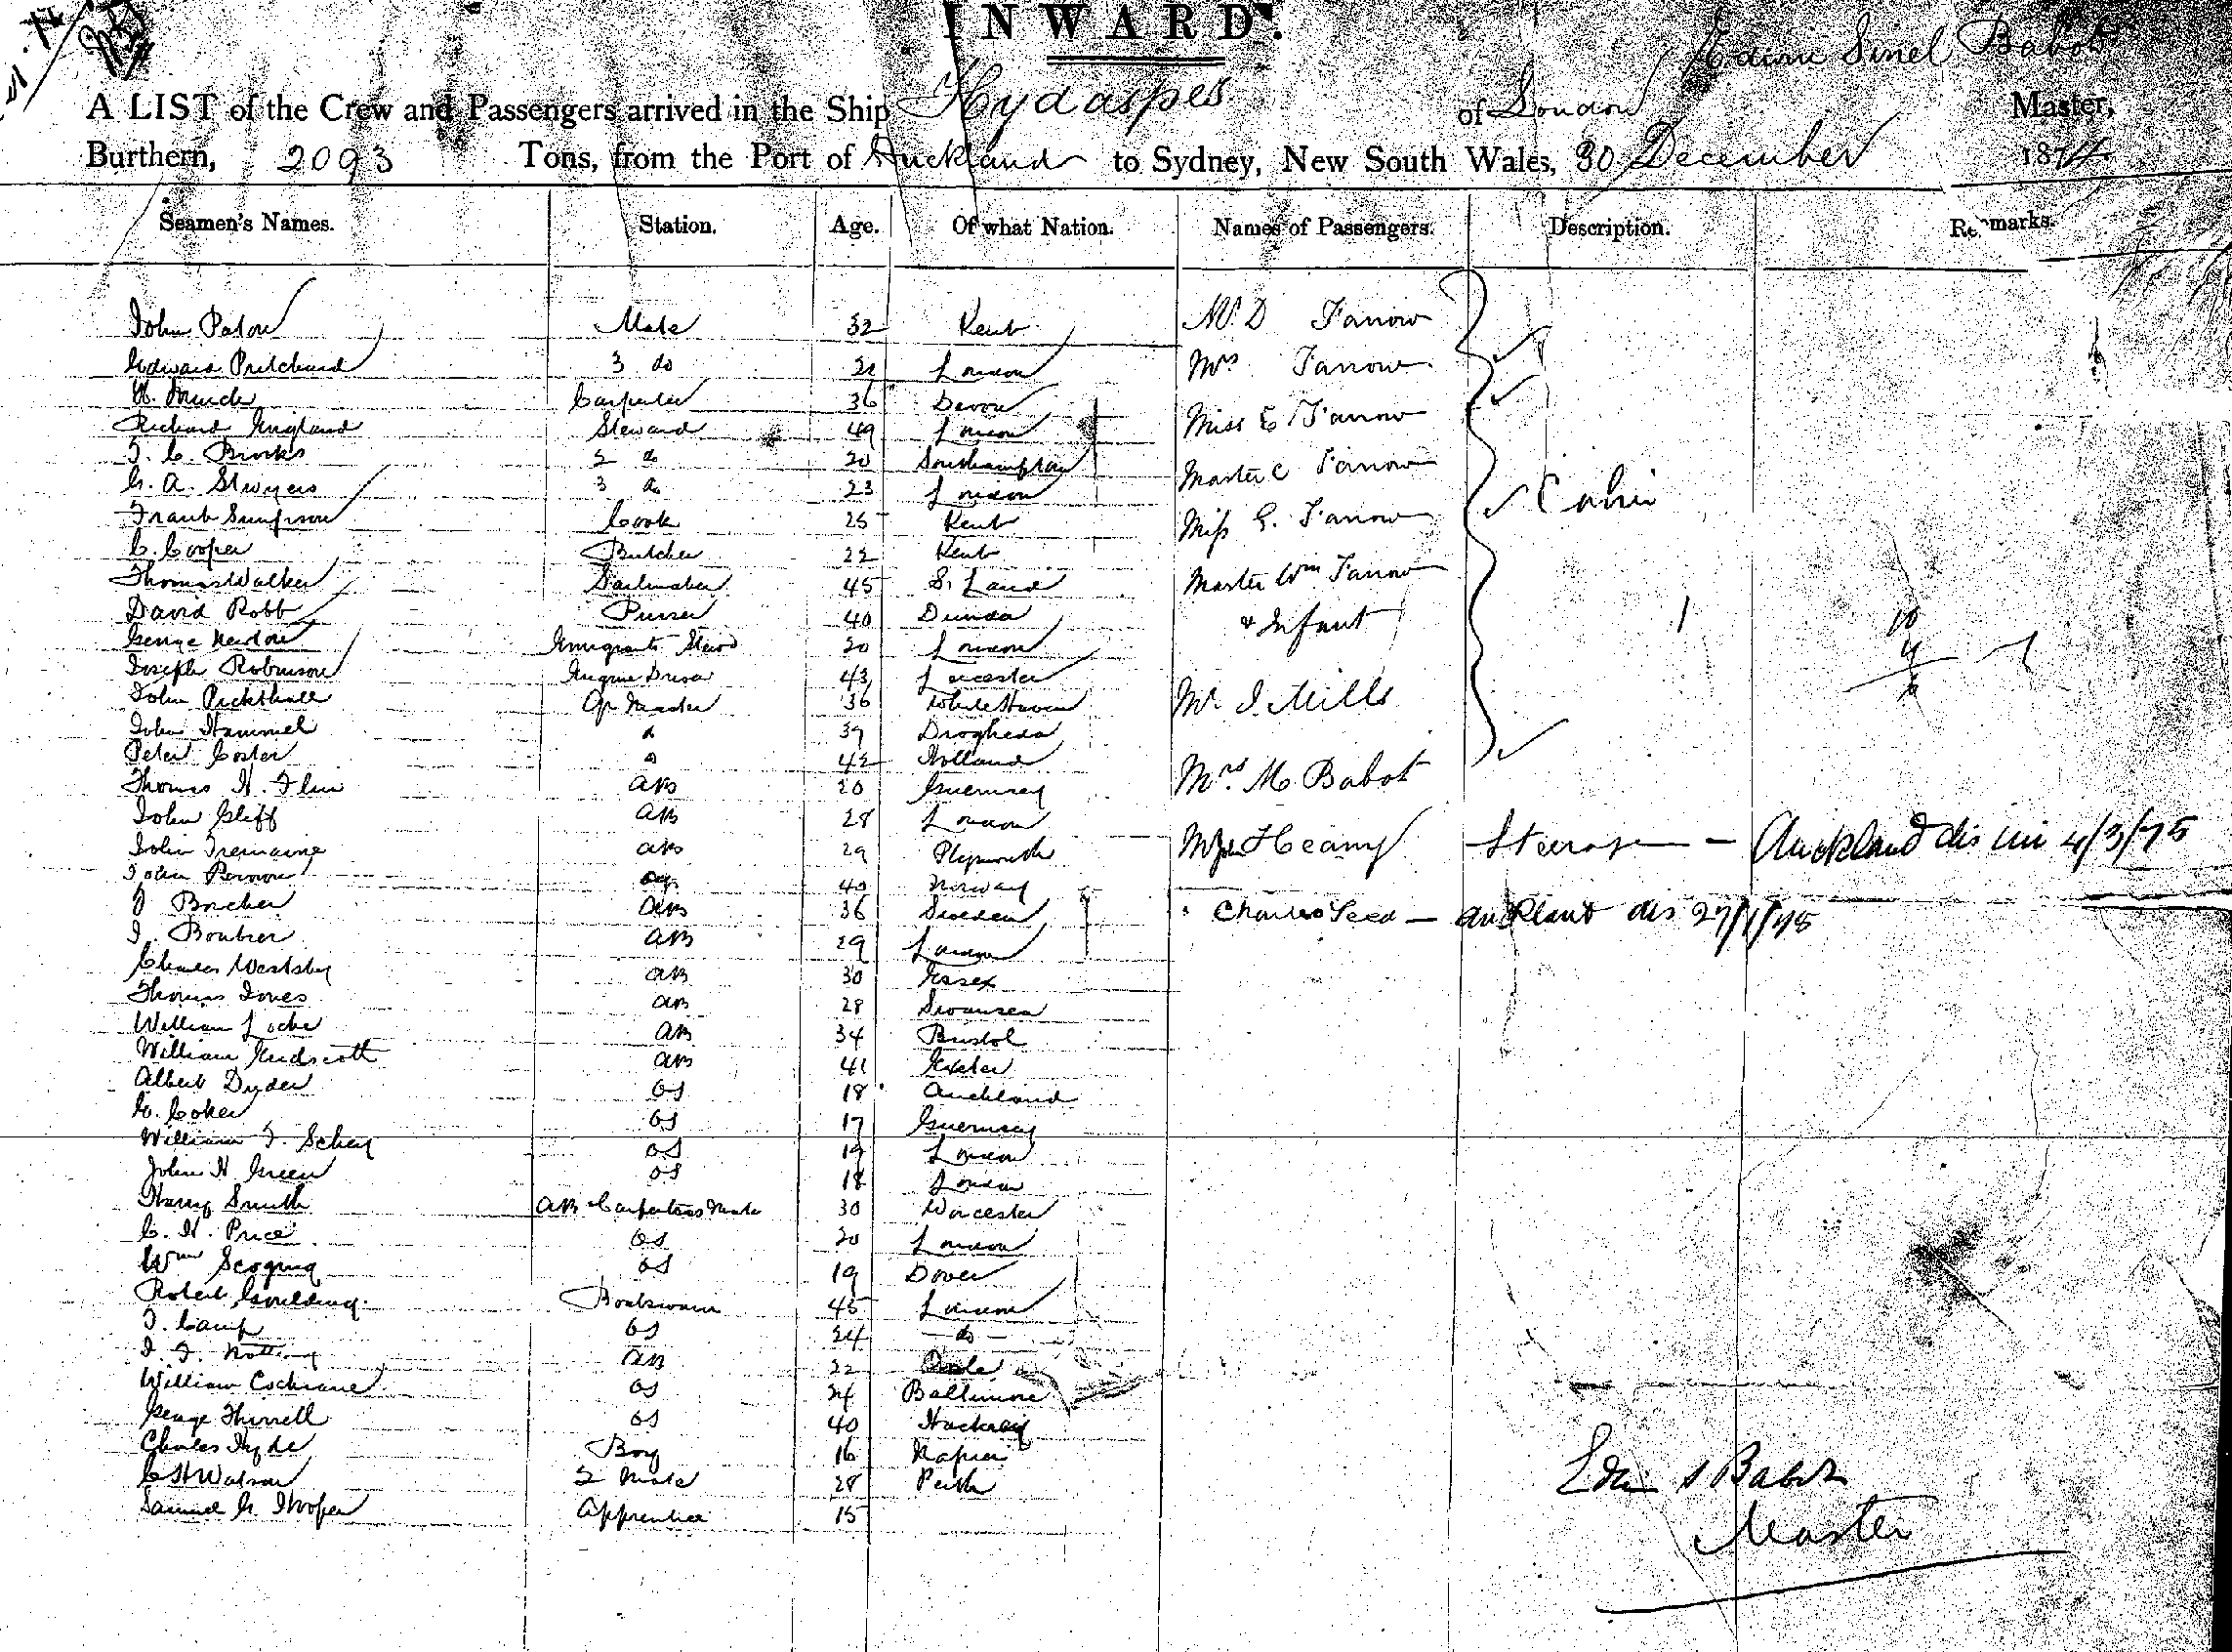 INWARD.
Edwin Sinel Babot
A LIST of the Crew and Passengers arrived in the Ship Hydaspes of London Master,
Burthern, 2093 Tons, from the Port of Auckland to Sydney, New South Wales, 30 December 1874
Seamen's Names. Station. Age. Of what Nation. Names of Passengers. Description. Remarks.
John Paton Mate 32 Kent Mr. D Farrow
Edward Pritchard 3 do 21 London Mrs Farrow
Carpenter 36 Devon
Richard England Steward 49 London Miss E Farrow
T. C. Brooks 2 do 20 Southampton Master C Farrow
G. A. 3 do 23 London Cabin
Frank Simpson Cook 25 Kent Miss G. Farrow
C. Cooper Butcher 22 Kent
Thomas Walker Sailmaker 45 S. Land Master Wm Farrow
David Robb Purser 40 Dundee & Infant
George Emigrants Stewd 20 London
Joseph Robinson Engine Driver 43 Leicester
John Pickthall Qr Master 36 White Haven Mr J. Mills
John Hammel do 39 Drogheda
Peter Coster do 42 Holland
Thomas H. Flin AB 20 Guernsey Mrs. M Babot
John Gliff AB 28 London
John Tremaine AB 29 Plymouth Heany Steerage — Auckland dis 4/3/75
John 40 Norway
J AB 36 Sweden Charles Seed — Auckland dis 27/1/75
J. AB 29 London
Charles Westsby AB 30 Essex
Thomas Jones AB 28 Swansea
William Locke AB 34 Bristol
William Endscott AB 41 Exeter
Albert Dyder OS 18 Auckland
G. Coker OS 17 Guernsey
William T. OS 19 London
John H Green OS 18 London
Harry Smith AB & Carpenters Mate 30 Worcester
C. H. Price OS 20 London
Wm Scoging OS 19 Dover
Robert Goulding Boatswain 45 London
T. Camp OS 24 — do —
J. J. AB 22 Poole
William Cochrane OS 24 Baltimore
George Thirrell OS 40 Hackney
Charles Hyde Boy 16 Napier
C H Watson 2 Mate 28 Perth
Samuel G. Hooper Apprentice 15
Edwin S Babot
Master